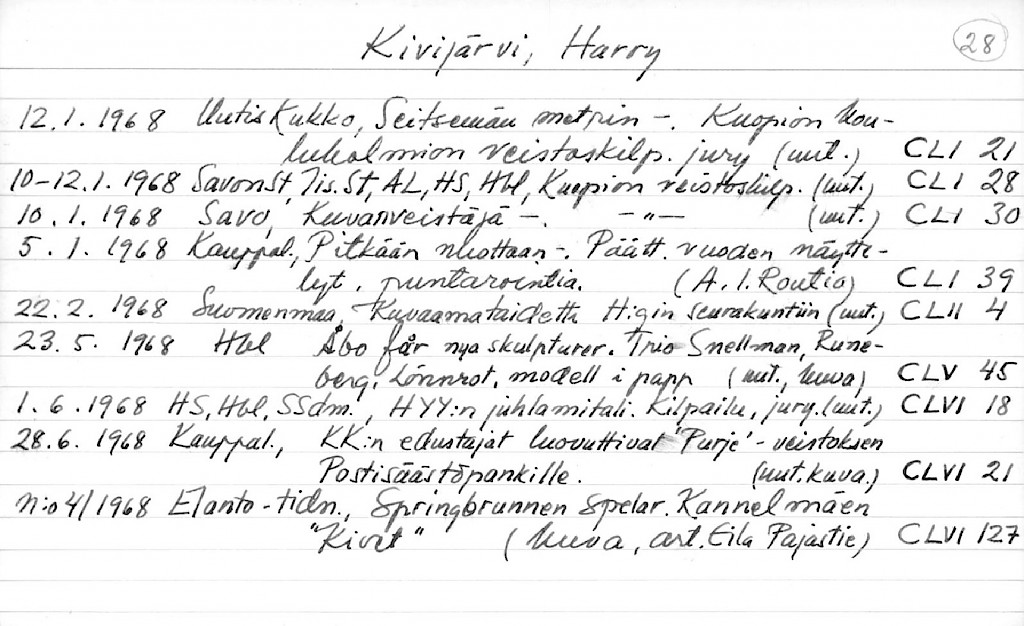 Kivijärvi, Harry 28
12.1.1968 UutisKukko, Seitsemän metrin -. Kuopion kou-
luholmion veistoskilp. jury (uut.) CLI 21
10-12.1.1968 SavonSt, Iis.St, AL, HS, Hbl, Kuopion veistoskilp. (uut.) CLI 28
10.1.1968 Savo, Kuvanveistäjä -. -"- (uut.) CLI 30
5.1.1968 Kauppal., Pitkään nuottaan -. Päätt. vuoden näytte-
lyt, puntarointia. (A.I. Routio) CLI 39
22.2.1968 Suomenmaa, Kuvaamataidetta H:gin seurakuntiin (uut.) CLII 4
23.5.1968 Hbl Åbo får nya skulpturer. Trio Snellman, Rune-
berg, Lönnrot, modell i papp (uut., kuva) CLV 45
1.6.1968 HS, Hbl, SSdm., HYY:n juhlamitali. Kilpailu, jury. (uut.) CLVI 18
28.6.1968 Kauppal., KK:n edustajat luovuttivat 'Purje'-veistoksen
Postisäästöpankille. (uut. kuva.) CLVI 21
N:o 4/1968 Elanto-tidn., Springbrunnen spelar. Kannelmäen
"Kivet" (kuva, art. Eila Pajastie) CLVI 127